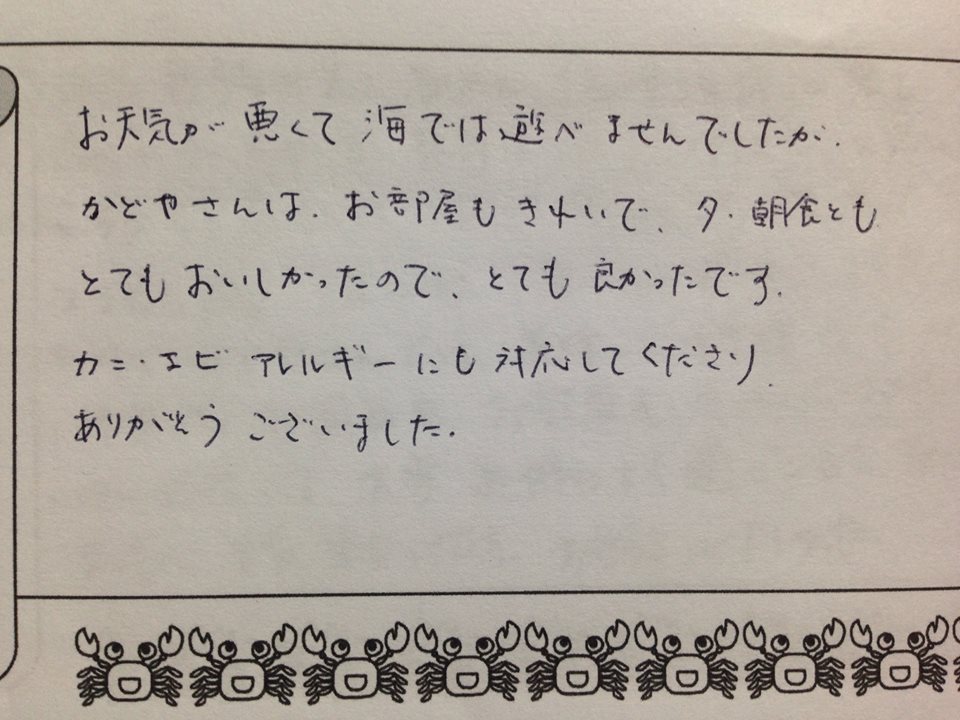 お天気が悪くて海では遊べませんでしたが、
かどやさんは、お部屋もきれいで、夕・朝食とも
とてもおいしかったので、とても良かったです。
カニ・エビアレルギーにも対応してくださり、
ありがとうございました。